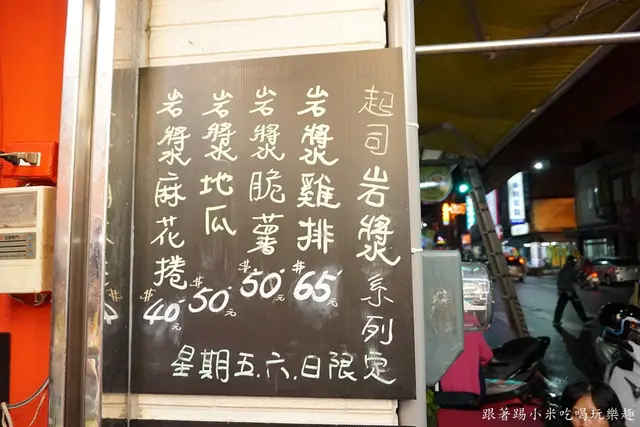 起司岩漿系列
岩漿雞排 $65元
岩漿脆薯 $50元
岩漿地瓜 $50元
岩漿麻花捲 $40元
星期五.六.日限定
跟著踢小米吃喝玩樂趣